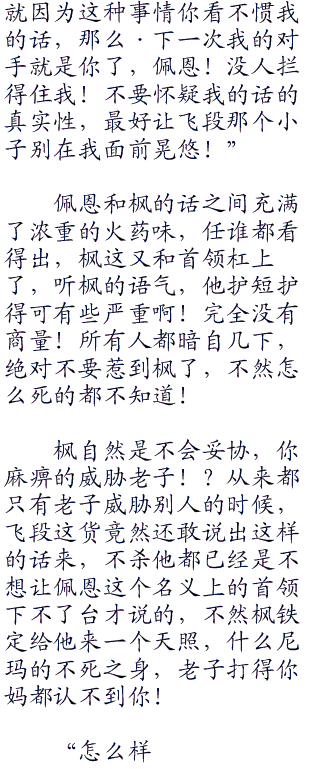 就因为这种事情你看不惯我
的话，那么·下一次我的对
手就是你了，佩恩！没人拦
得住我！不要怀疑我的话的
真实性，最好让飞段那个小
子别在我面前晃悠！”
佩恩和枫的话之间充满
了浓重的火药味，任谁都看
得出，枫这又和首领杠上
了，听枫的语气，他护短护
得可有些严重啊！完全没有
商量！所有人都暗自几下，
绝对不要惹到枫了，不然怎
么死的都不知道！
枫自然是不会妥协，你
麻痹的威胁老子！？从来都
只有老子威胁别人的时候，
飞段这货竟然还敢说出这样
的话来，不杀他都已经是不
想让佩恩这个名义上的首领
下不了台才说的，不然枫铁
定给他来一个天照，什么尼
玛的不死之身，老子打得你
妈都认不到你！
“怎么样